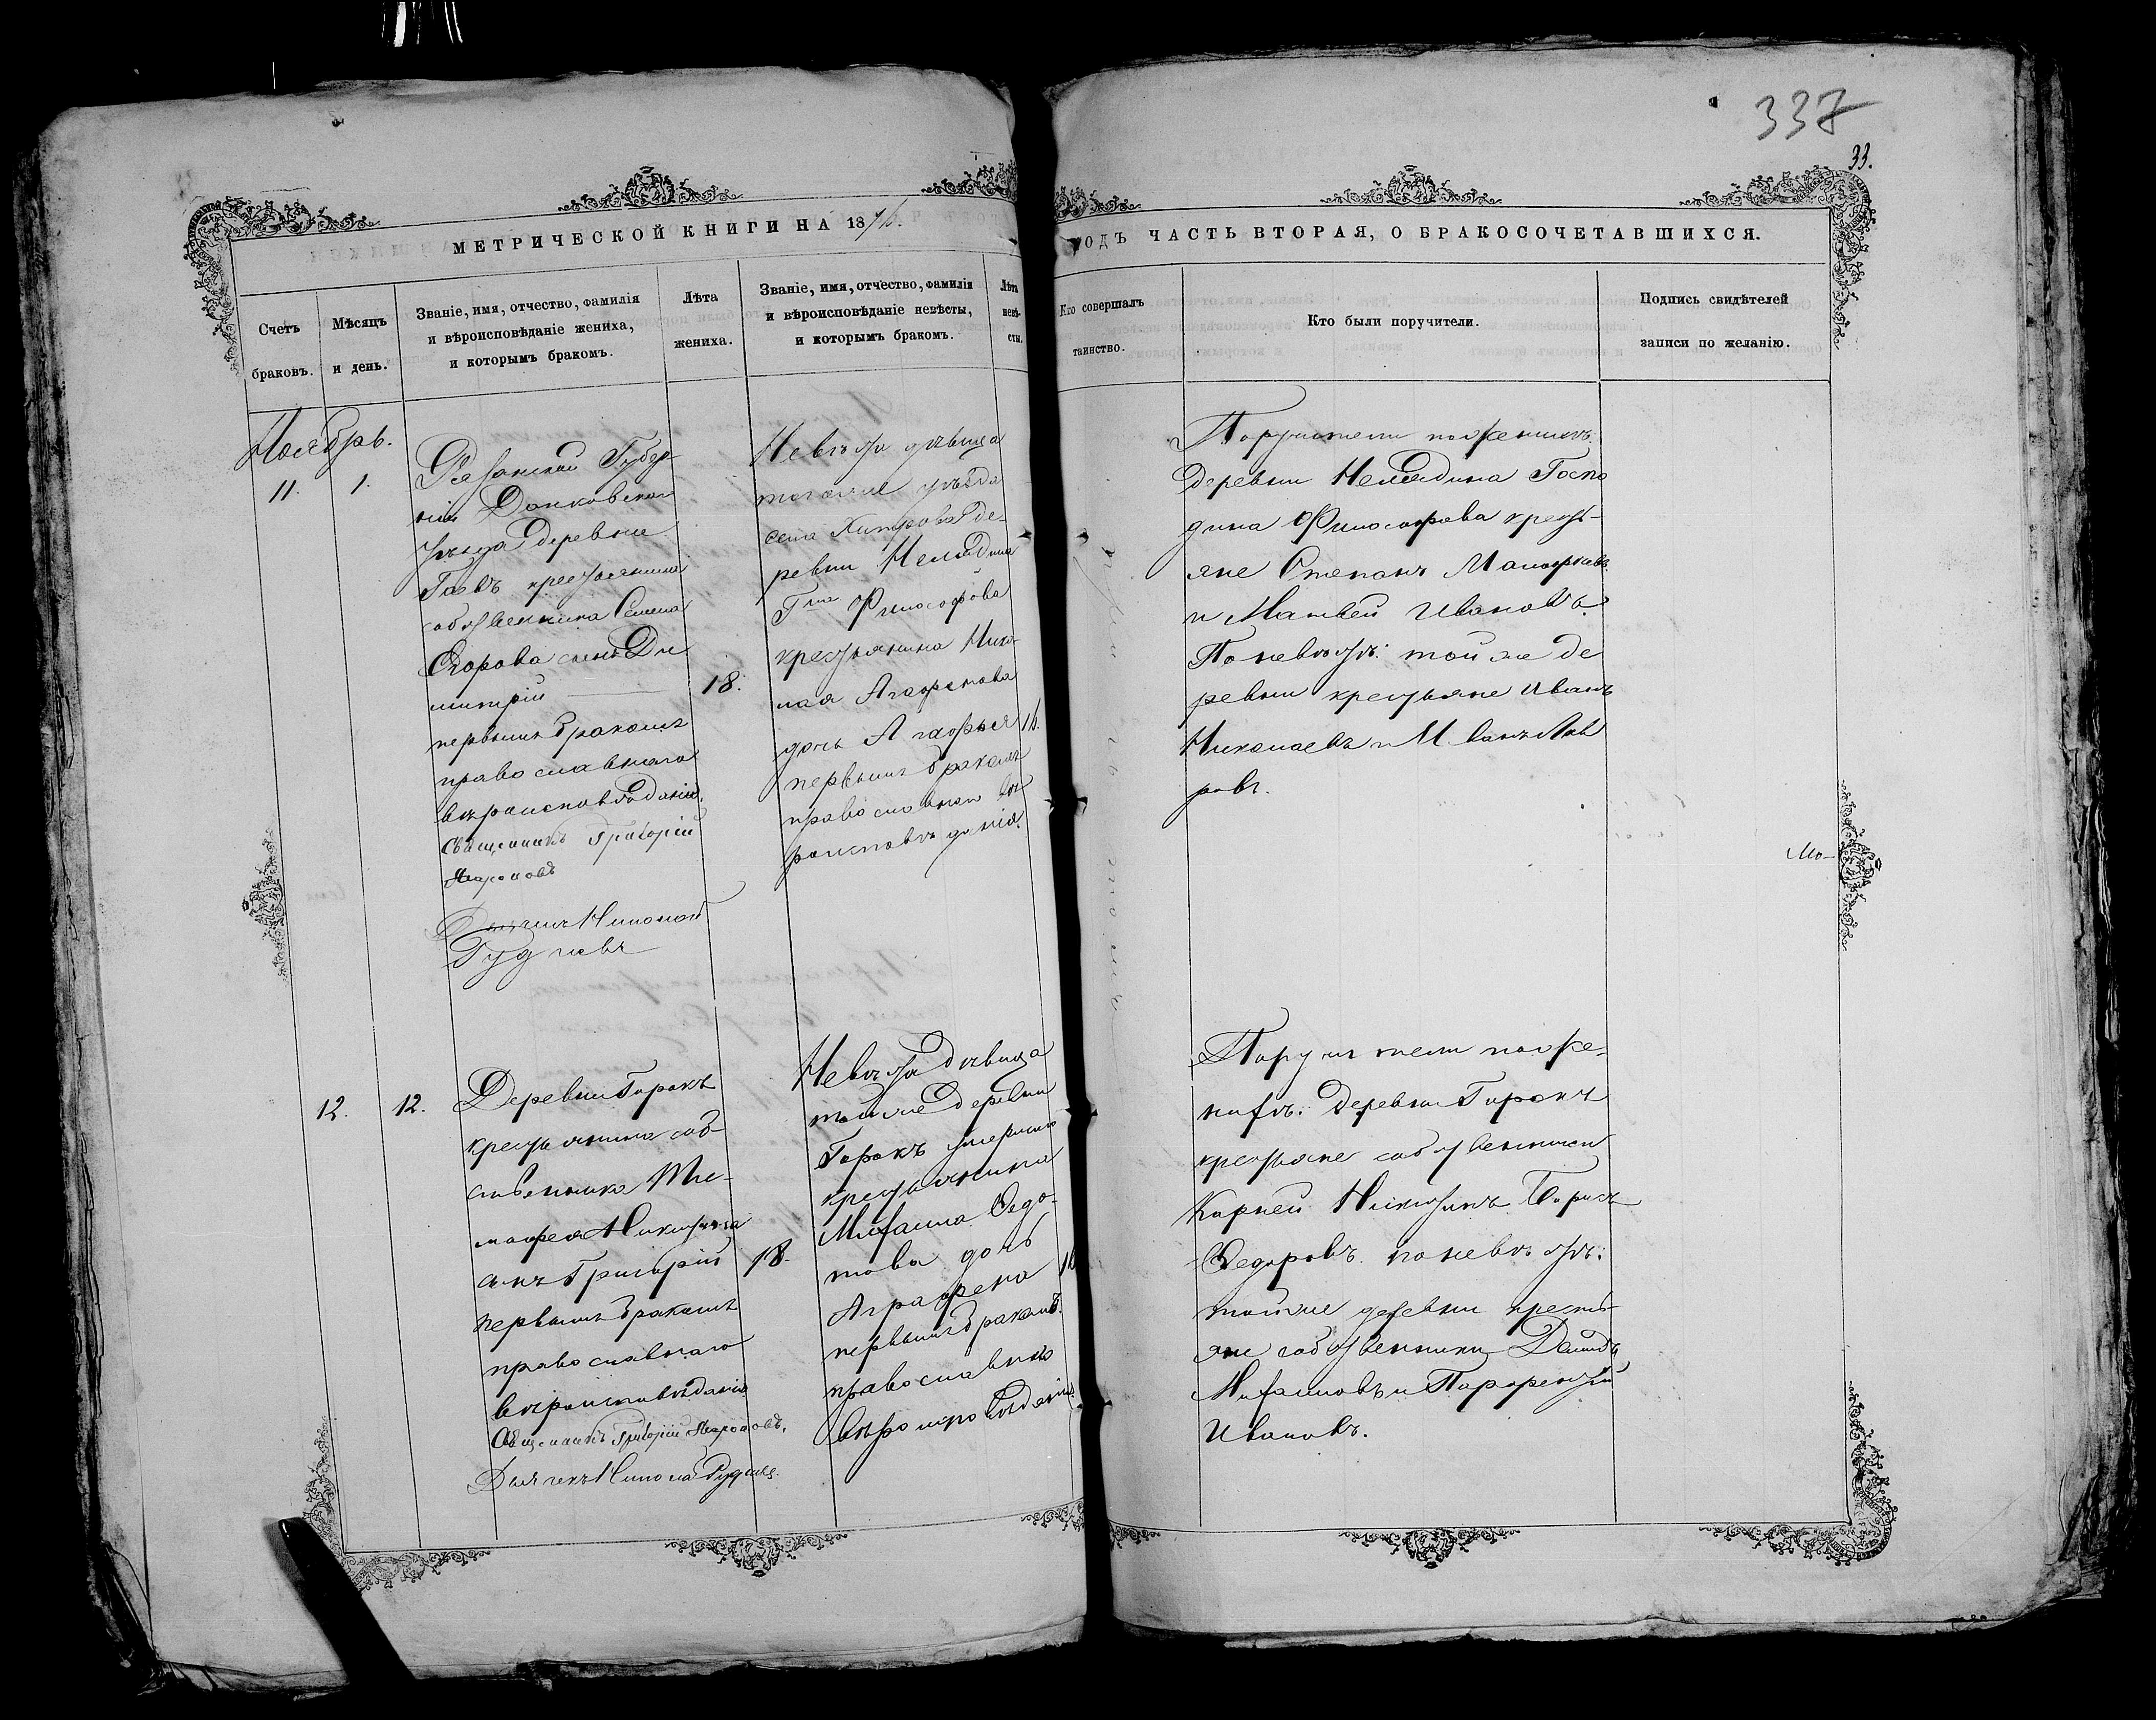 337
33.
МЕТРИЧЕСКОЙ КНИГИ НА 1876.
ГОДЪ ЧАСТЬ ВТОРАЯ, О БРАКОСОЧЕТАВШИХСЯ.
Счетъ
браковъ.
Мѣсяцъ
и день.
Званіе, имя, отчество, фамилія
и вѣроисповѣданіе жениха,
и которымъ бракомъ.
Лѣта
жениха.
Званіе, имя, отчество, фамилія
и вѣроисповѣданіе невѣсты,
и которымъ бракомъ.
Лѣта
невѣ-
сты.
Кто совершалъ
таинство.
Кто были поручители.
Подпись свидѣтелей
записи по желанію.
Ноябрь.
11.
1.
Рязанской Губер-
ніи Данковскаго
уѣзда деревни
крестьянина
собственника Семена
Егорова сынъ Ди
митрій
первымъ бракомъ
православнаго
вѣроисповѣданія.
Священникъ Григорій
Дьячекъ Николай
Рудневъ
18.
Невѣста дѣвица
тогоже уѣзда
села Хитрова де-
ревни Нелядина
Гна Философова
крестьянина Нико-
лая Агафонова
дочь Агафья
первымъ бракомъ
православнаго вѣ
роисповѣданія.
16.
Поручители по женихѣ
деревни Нелядина Госпо
дина Философова кресть-
яне Степанъ
и Матвей Ивановъ
По невѣстѣ: той же де
ревни крестьяне Иванъ
Николаевъ и
ровъ.
Мо-
12.
12.
Деревни Горокъ
крестьянина соб-
ственника Ти-
мофея Никитина
сынъ Григорій
первымъ бракомъ
православнаго
вѣроисповѣданія
Священникъ Григорій
Дьячекъ Николай Рудневъ.
18.
Невѣста дѣвица
тойже деревни
Горокъ умершаго
крестьянина
Михаила Федо-
това дочь
Аграфена
первымъ бракомъ.
православнаго
вѣроисповѣданія.
16
Поручители по же-
нихѣ: деревни Горокъ
крестьяне собственники
Корней Никитинъ Борисъ
Федоровъ. по невѣстѣ:
тойже деревни кресть-
яне собственники Давидъ
Михаиловъ и
Ивановъ.